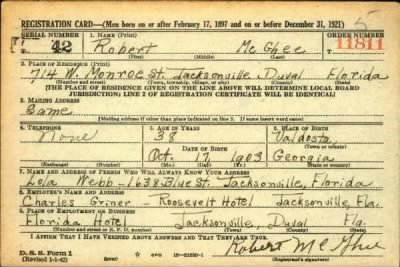 REGISTRATION CARD—(Men born on or after February 17, 1897 and on or before December 31, 1921) 5
SERIAL NUMBER 1. NAME (Print) ORDER NUMBER
42 Robert McGhee 11811
(First) (Middle) (Last)
2. PLACE OF RESIDENCE (Print)
714 W. Monroe St. Jacksonville Duval Florida
(Number and street) (Town, township, village, or city) (County) (State)
[THE PLACE OF RESIDENCE GIVEN ON THE LINE ABOVE WILL DETERMINE LOCAL BOARD
JURISDICTION; LINE 2 OF REGISTRATION CERTIFICATE WILL BE IDENTICAL]
3. MAILING ADDRESS
Same
[Mailing address if other than place indicated on line 2. If same insert word same]
4. TELEPHONE 5. AGE IN YEARS 6. PLACE OF BIRTH
None 38 Valdosta,
DATE OF BIRTH (Town or county)
Oct. 17 1903 Georgia
(Exchange) (Number) (Mo.) (Day) (Yr.) (State or country)
7. NAME AND ADDRESS OF PERSON WHO WILL ALWAYS KNOW YOUR ADDRESS
Lola Webb - 1638 Blue St. Jacksonville, Florida
8. EMPLOYER'S NAME AND ADDRESS
Charles Griner - Roosevelt Hotel Jacksonville Fla.
9. PLACE OF EMPLOYMENT OR BUSINESS
Florida Hotel Jacksonville, Duval Fla.
(Number and street or R. F. D. number) (Town) (County) (State)
I AFFIRM THAT I HAVE VERIFIED ABOVE ANSWERS AND THAT THEY ARE TRUE.
D. S. S. Form 1
(Revised 1-1-42) (over) 16—21630-1 Robert McGhee
(Registrant's signature)